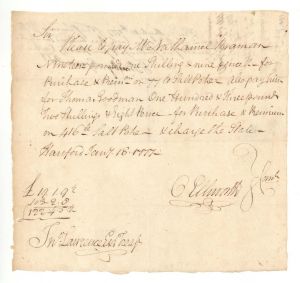 Sir
Please to pay Mr Nathaniel
Nineteen pounds one Shilling & nine pence for
Purchase & Premium on Salt Petre also pay him
for Thomas Goodman One Hundred & three pounds
Two Shillings & Eight Pence for Purchase & Premium
on 416 lb Salt Petre & charge the State
Hartford Jany 16 1777
£ 19. 1. 9
103. 2. 8
O Ellsworth Comtt
Jno Lawrence Esqr Treasr